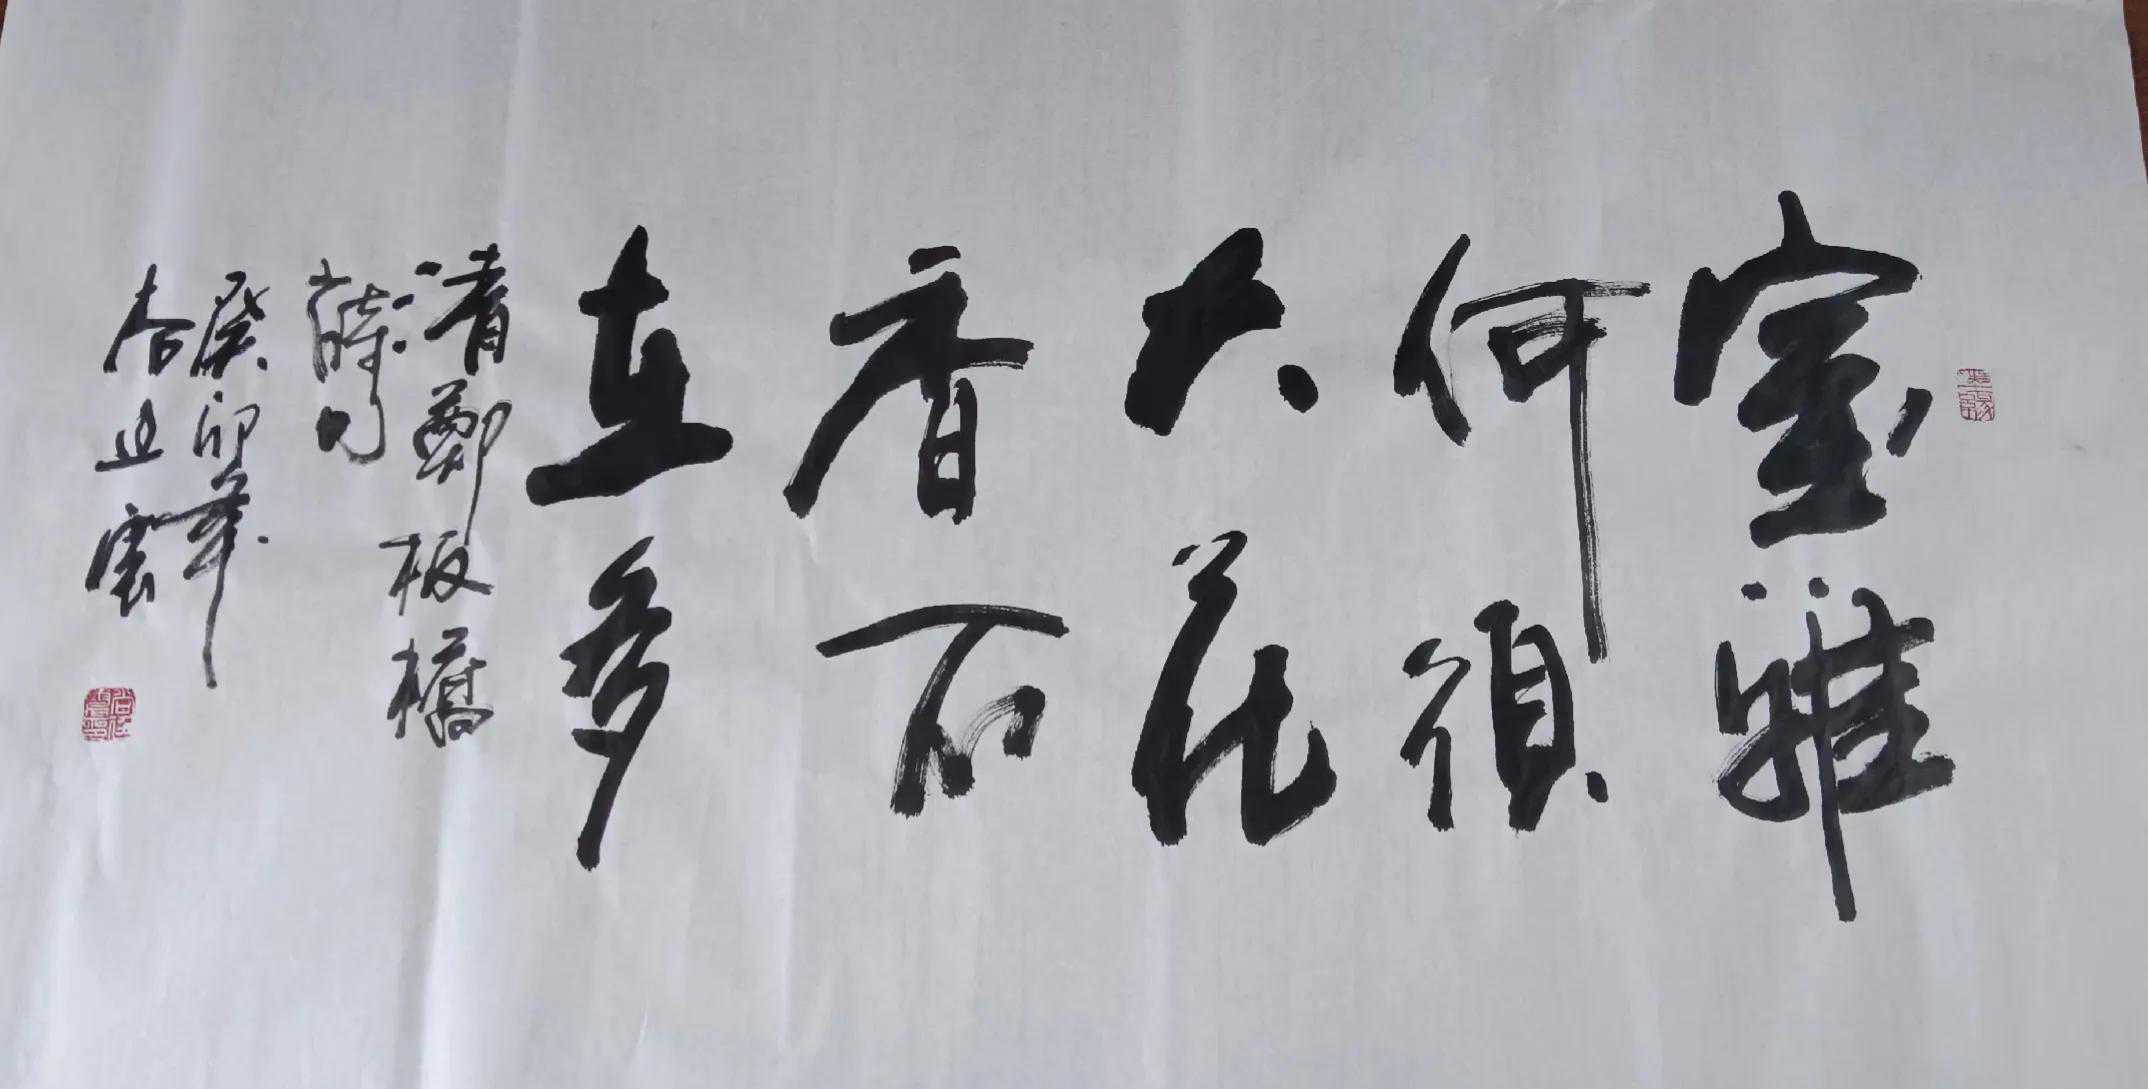 室雅
何須
大花
香不
在多
清鄭板橋
詩句
癸卯年
雲